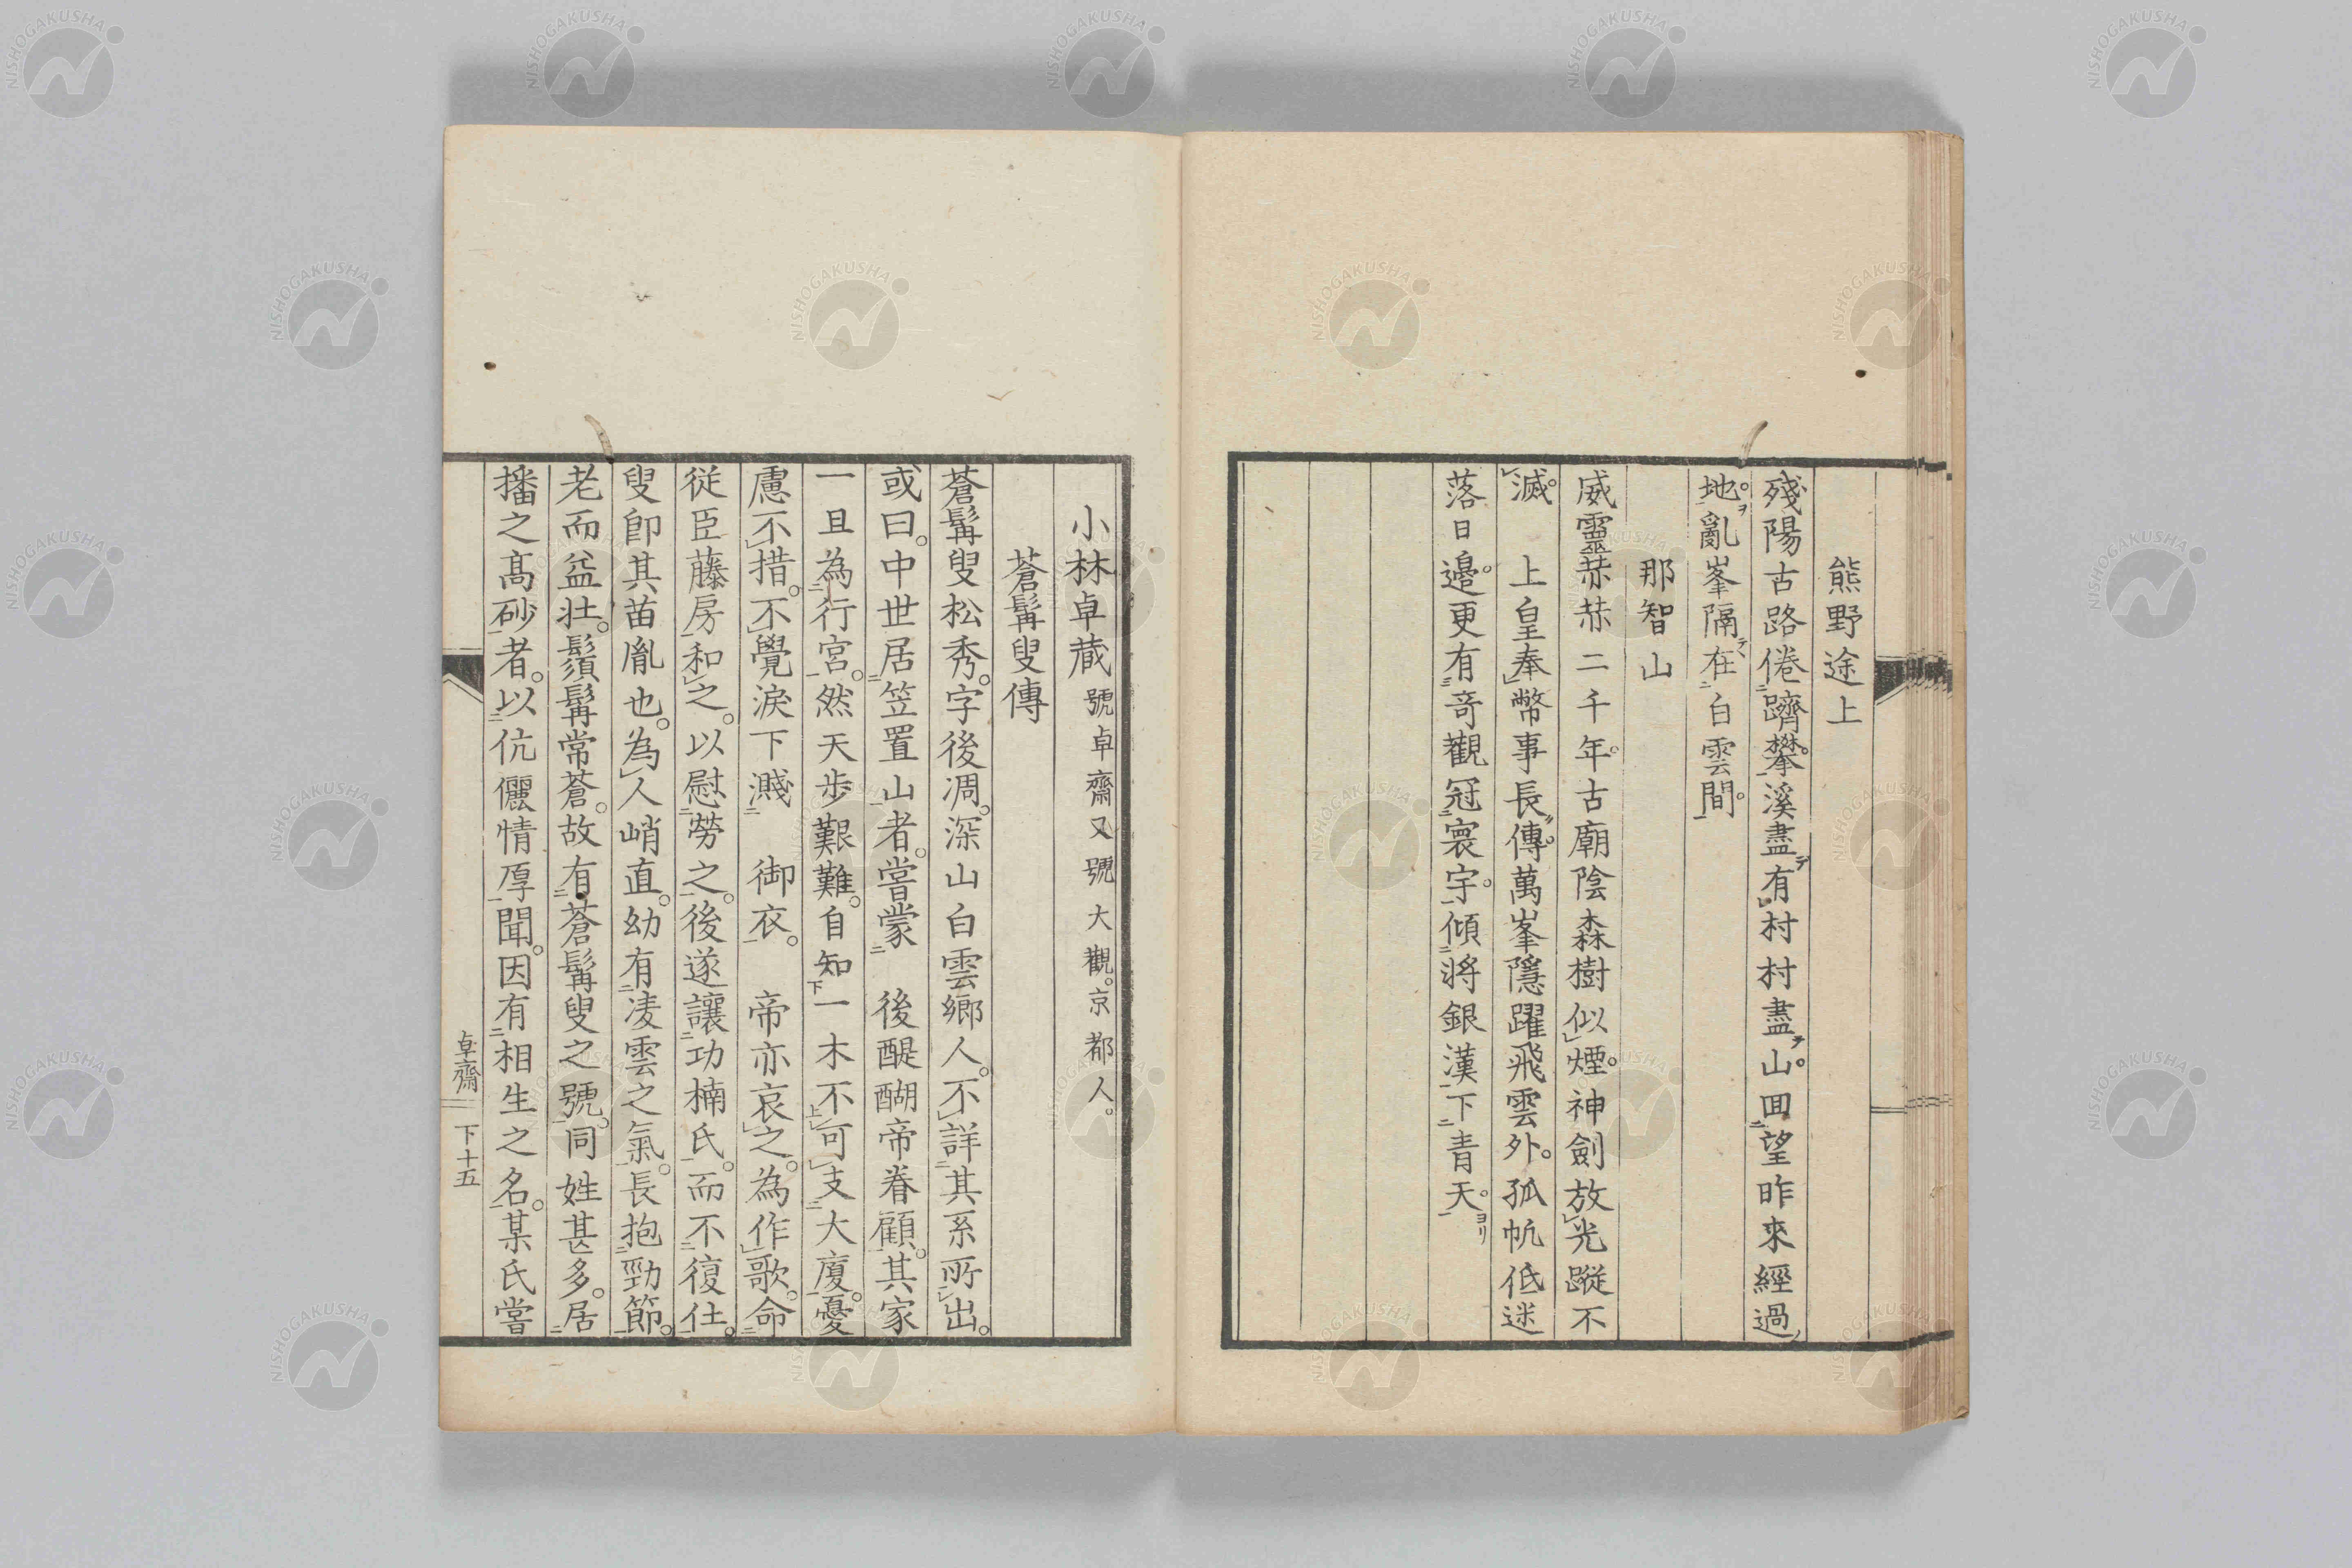 熊野途上
殘陽古路倦躋攀。溪盡有村村盡山。回望昨來經過
地。亂峯隔在白雲間。
那智山
威靈赫赫二千年。古廟陰森樹似煙。神劍放光蹤不
滅。　上皇奉幣事長傳。萬峯隱躍飛雲外。孤帆低迷
落日邊。更有奇觀冠寰宇。傾將銀漢下青天。
小林卓藏號卓齋又號大觀。京都人。
蒼髯叟傳
蒼髯叟松秀。字後凋。深山白雲鄉人。不詳其系所出。
或曰。中世居笠置山者。嘗蒙　後醍醐帝眷顧。其家
一旦為行宮。然天步艱難。自知一木不可支大廈。憂
慮不措。不覺淚下濺　御衣。　帝亦哀之。為作歌。命
從臣藤房和之。以慰勞之。後遂讓功楠氏。而不復仕。
叟卽其苗胤也。為人峭直。幼有凌雲之氣。長抱勁節。
老而益壯。鬚髯常蒼。故有蒼髯叟之號。同姓甚多。居
播之高砂者。以伉儷情厚聞。因有相生之名。某氏嘗
卓齋　下十五
NISHOGAKUSHA